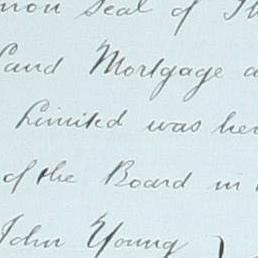 mon Seal of Th
Land Mortgage a
Limited was her
of the Board in
John Young